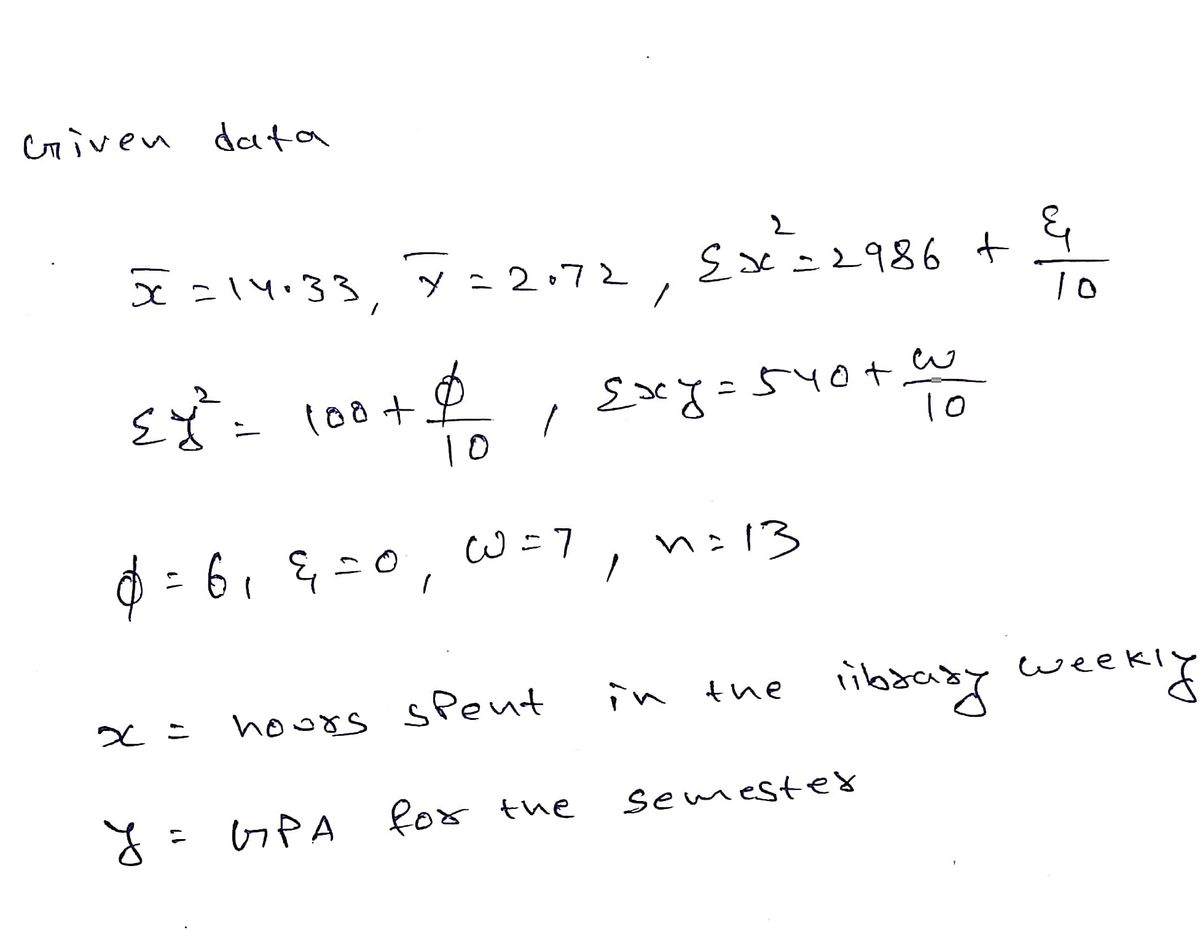 Given data
x̄ = 14.33, ȳ = 2.72, Σx² = 2986 + ξ/10
Σy² = 100 + ϕ/10, Σxy = 540 + ω/10
ϕ = 6, ξ = 0, ω = 7, n = 13
x = hours spent in the library weekly
y = GPA for the semester